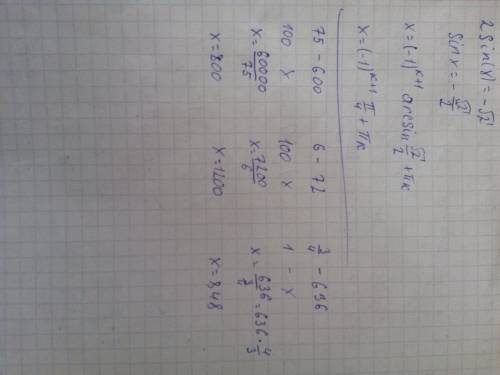 2 sin(x) = -√2
sin x = - √2/2
x = (-1)^(к+1) arcsin √2/2 + πк
x = (-1)^(к+1) π/4 + πк
75 - 600
100 x
x = 60000/75
x = 800
6 - 72
100 x
x = 7200/6
x = 1200
3/4 - 636
1 - x
x = 636/(3/4) = 636 · 4/3
x = 848